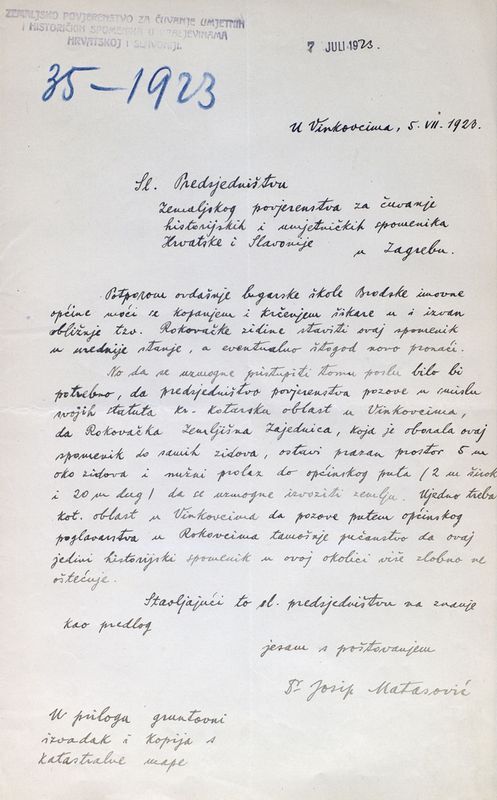 ZEMALJSKO POVJERENSTVO ZA ČUVANJE UMJETNIH
I HISTORIČKIH SPOMENIKA U KRALJEVINAMA
HRVATSKOJ I SLAVONIJI.
7 JULI 1923.
35-1923
U Vinkovcima, 5. VII. 1923.
Sl. Predsjedništvu
Zemaljskog povjerenstva za čuvanje
historijskih i umjetničkih spomenika
Hrvatske i Slavonije
u Zagrebu.
Potporom ovdašnje lugarske škole Brodske imovne
općine moći će se kopanjem i krčenjem šikare u i izvan
obližnje tzv. Rokovačke zidine staviti ovaj spomenik
u urednije stanje, a eventualno štogod novo pronaći.
No da se uzmogne pristupiti tomu poslu bilo bi
potrebno, da predsjedništvo povjerenstva pozove u smislu
svojih statuta kr. kotarsku oblast u Vinkovcima,
da Rokovačka Zemljišna Zajednica, koja je oborala ovaj
spomenik do samih zidova, ostavi prazan prostor 5 m
oko zidova i nužni prolaz do općinskog puta /2 m širok
i 20 m dug/ da se uzmogne izvoziti zemlju. Ujedno treba
kot. oblast u Vinkovcima da pozove putem općinskog
poglavarstva u Rokovcima tamošnje pučanstvo da ovaj
jedini historijski spomenik u ovoj okolici više zlobno ne
oštećuje.
Stavljajući to sl. predsjedništvu na znanje
kao predlog
jesam s poštovanjem
Dr Josip Matasović
U prilogu gruntovni
izvadak i kopija s
katastralne mape